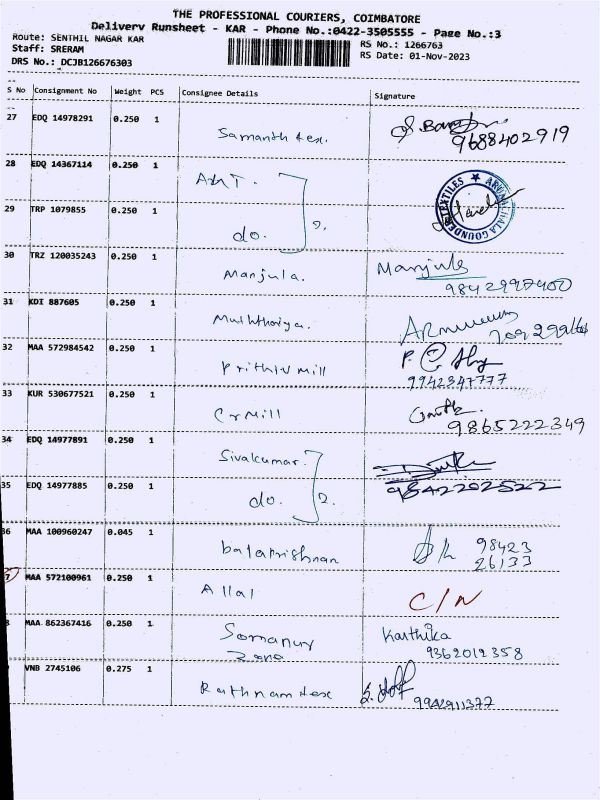 THE PROFESSIONAL COURIERS, COIMBATORE
Delivery Runsheet - KAR - Phone No.:0422-3505555 - Page No.:3
Route: SENTHIL NAGAR KAR
RS No.: 1266763
Staff: SRERAM
RS Date: 01-Nov-2023
DRS No.: DCJB126676303
S No Consignment No Weight PCS Consignee Details Signature
27 EDQ 14978291 0.250 1 Samanth tex.
9688402919
28 EDQ 14367114 0.250 1
ARUNACHALA GOUNDER TEXTILES
29 TRP 1079855 0.250 1 do. 2.
30 TRZ 120035243 0.250 1 Manjula. Manjula
31 KDI 887605 0.250 1
32 MAA 572984542 0.250 1 Prithiv Mill
9942347777
33 KUR 530677521 0.250 1 Cr Mill
9865222349
34 EDQ 14977891 0.250 1 Sivakumar.
35 EDQ 14977885 0.250 1 do. 2.
9842202522
36 MAA 100960247 0.045 1 balakrishnan 98423
26133
7 MAA 572100961 0.250 1 Allal C/N
MAA 862367416 0.250 1 Somanur Karthika
Zone 9362012358
VNB 2745106 0.275 1 Rathnam tex
9942911377